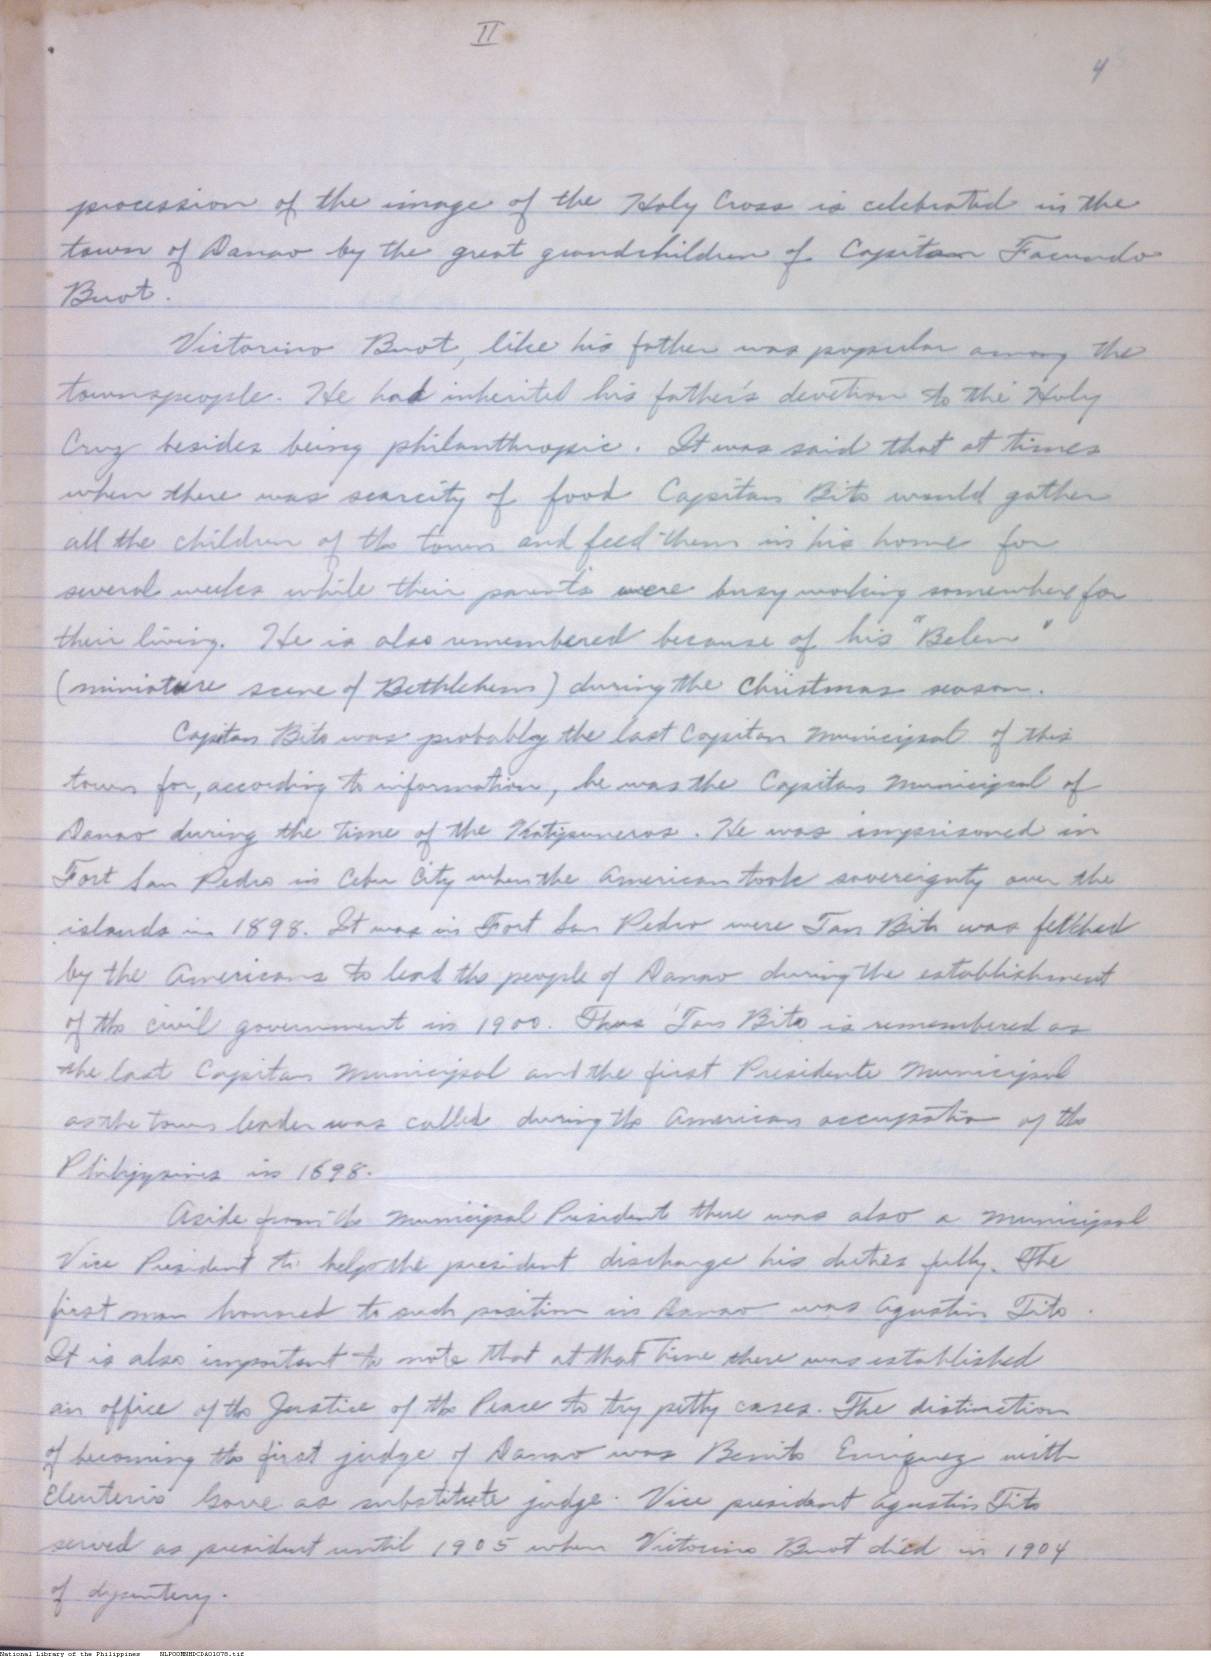 II
4
procession of the image of the Holy Cross is celebrated in the
town of Danao by the great grandchildren of Capitan Facundo
Buot.
Victorino Buot, like his father was popular among the
townspeople. He had inherited his father's devotion to the Holy
Cruz besides being philanthropic. It was said that at times
when there was scarcity of food Capitan Bito would gather
all the children of the town and feed them in his home for
several weeks while their parents were busy working somewhere for
their living. He is also remembered because of his "Belen"
(miniature scene of Bethlehem) during the Christmas season.
Capitan Bito was probably the last Capitan Municipal of this
town for, according to information, he was the Capitan Municipal of
Danao during the time of the Katipuneros. He was imprisoned in
Fort San Pedro in Cebu City when the American took sovereignty over the
islands in 1898. It was in Fort San Pedro were Tan Bito was fetched
by the Americans to lead the people of Danao during the establishment
of the civil government in 1900. Thus 'Tan Bito is remembered as
the last Capitan Municipal and the first Presidente Municipal
as the town leader was called during the American occupation of the
Philippines in 1898.
Aside from the Municipal President there was also a Municipal
Vice President to help the president discharge his duties fully. The
first man honored to such position in Danao was Agustin Tito.
It is also important to note that at that time there was established
an office of the Justice of the Peace to try petty cases. The distinction
of becoming the first judge of Danao was Benito Enriquez with
Eleuterio as substitute judge. Vice president Agustin Tito
served as president until 1905 when Victorino Buot died in 1904
of dysentery.
National Library of the Philippines NLPOOMNHDCDA01078.tif